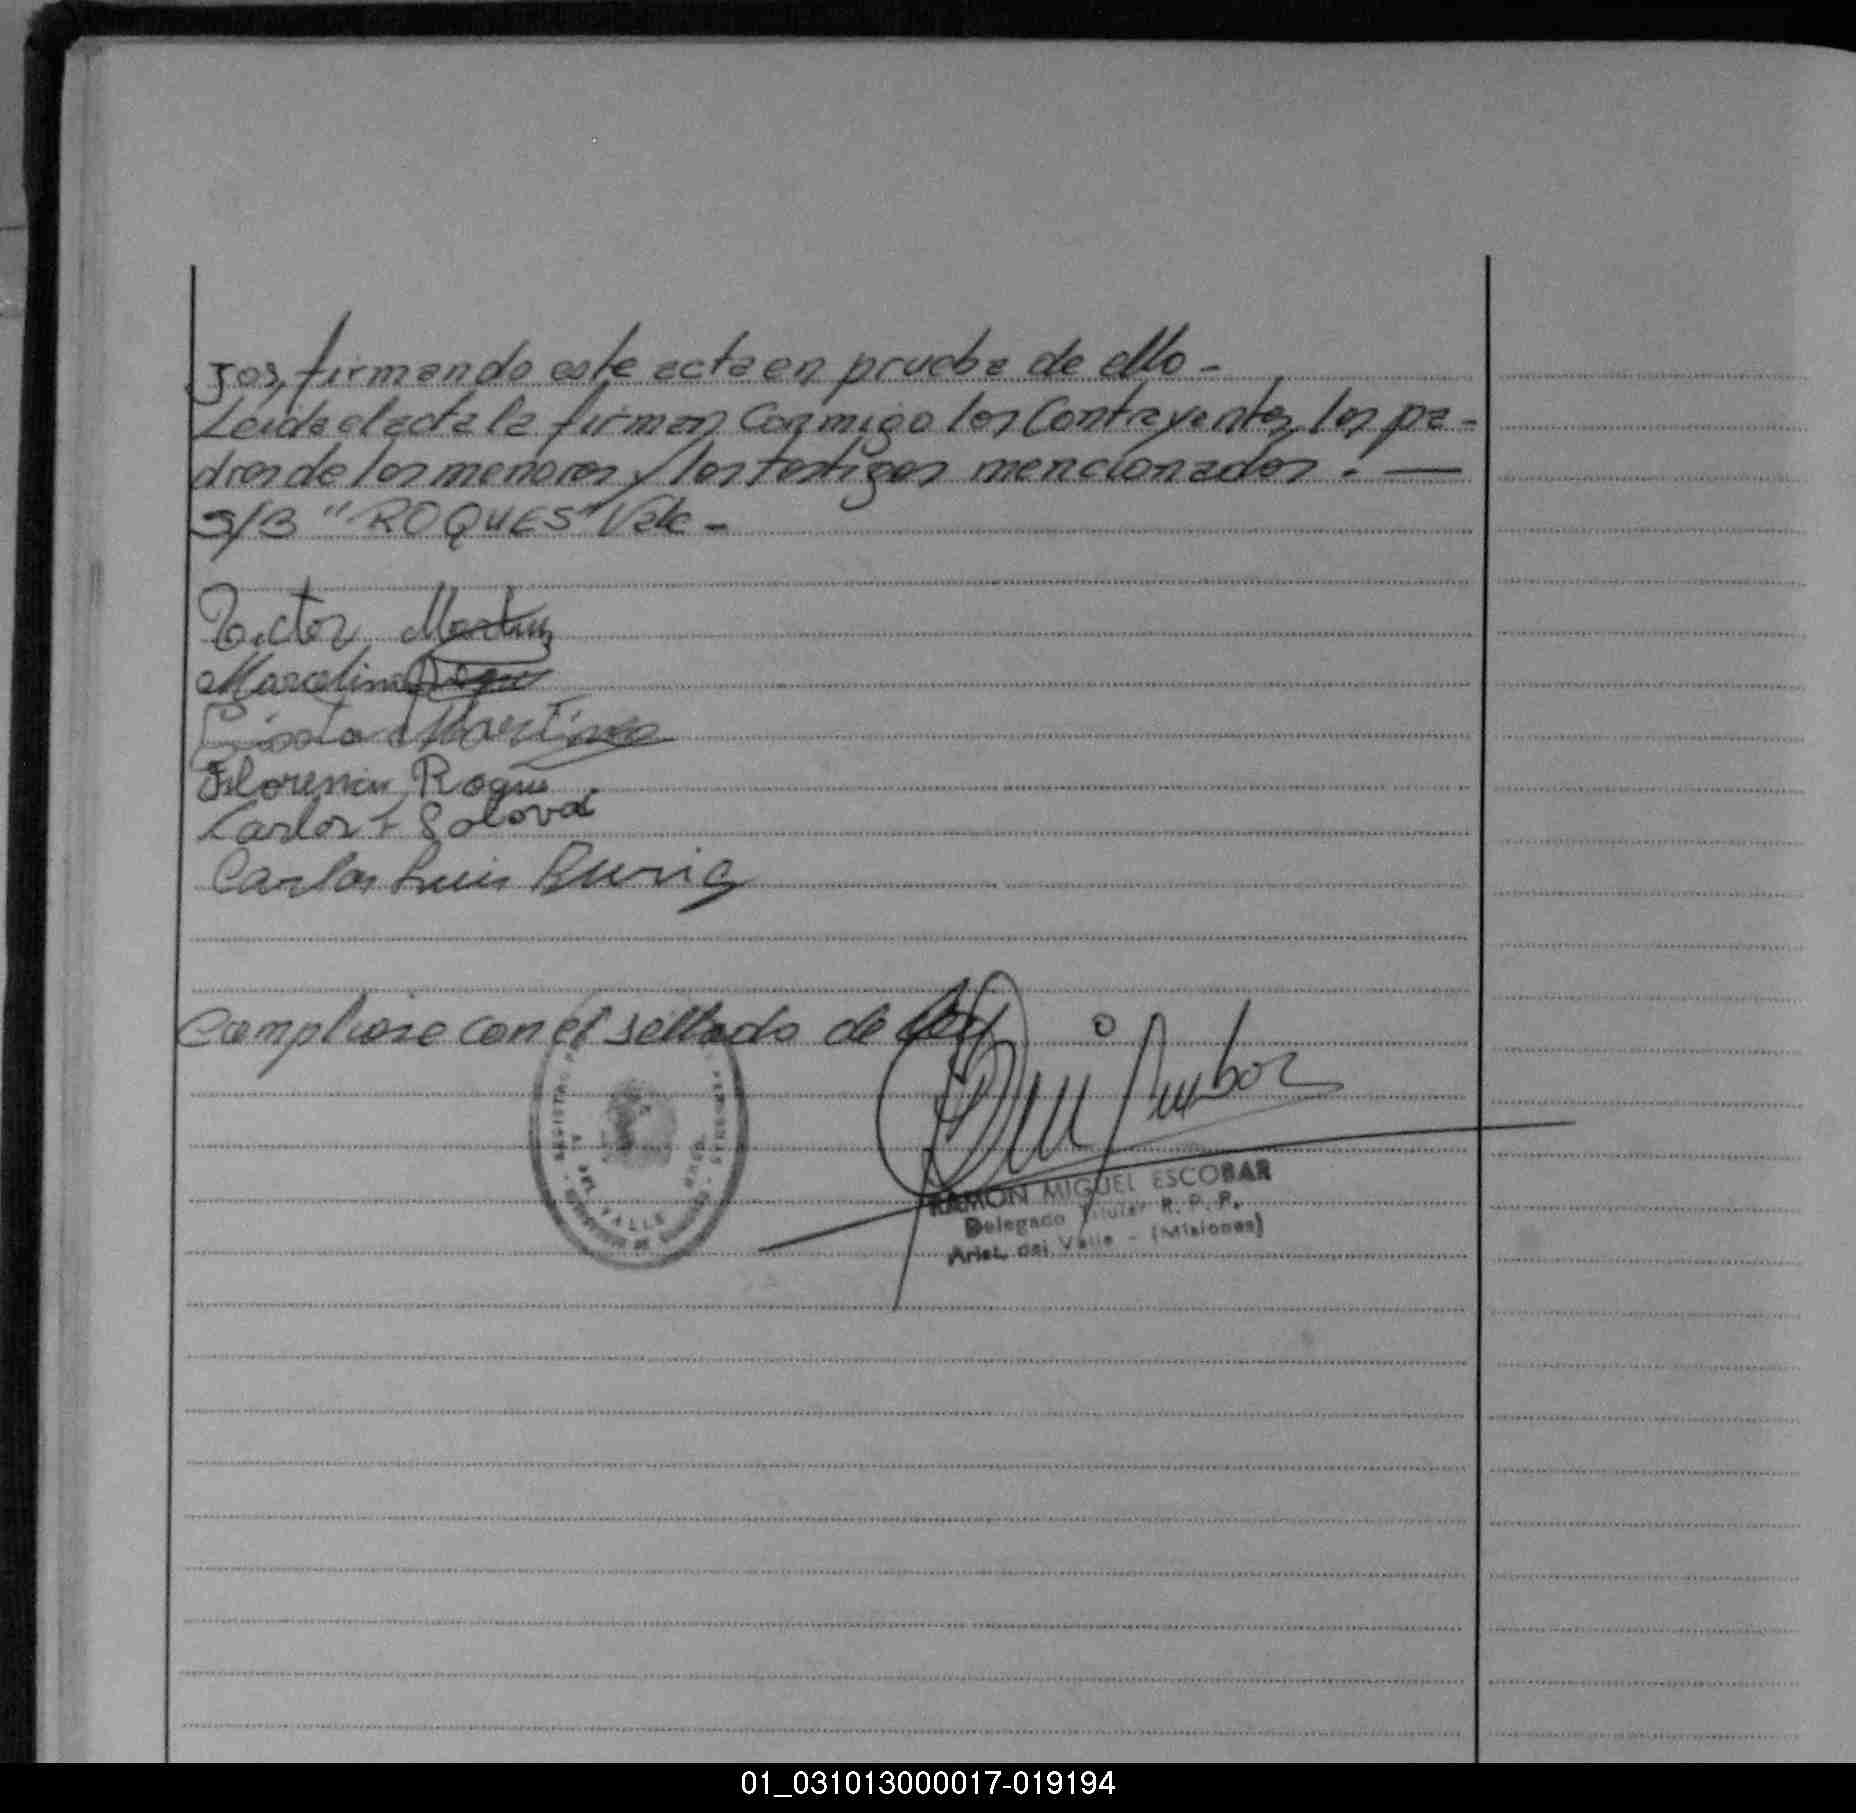 jos, firmando este acta en prueba de ello -
Leida el acta la firman conmigo los contrayentes, los pa-
dres de los menores y los testigos mencionados. —
S/B "ROQUES" Vale -
Victor Martin
Marcelina Roque
Martinez
Florencia Roque
Carlos
Carlos Luis
Cumpliose con el sellado de Ley
RAMON MIGUEL ESCOBAR
Delegado Titular R. P. P.
Arist. del Valle - (Misiones)
01_031013000017-019194